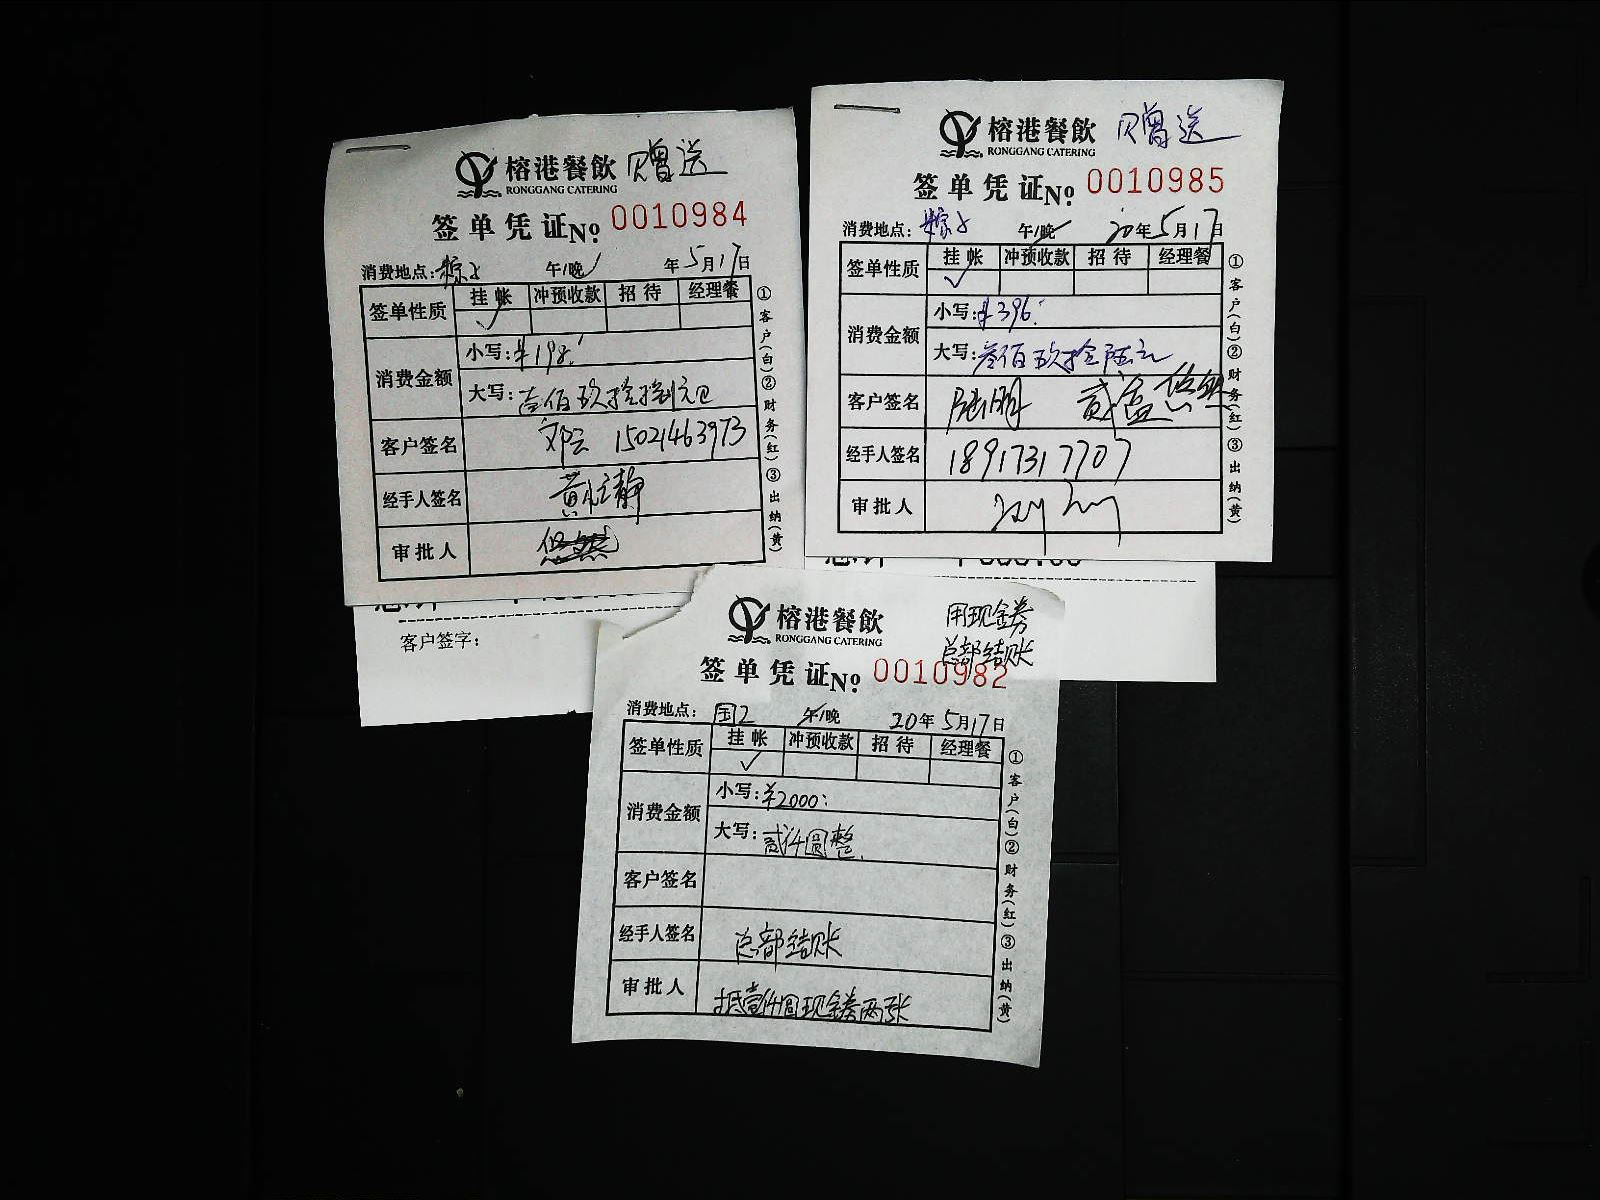 榕港餐飲 赠送
RONGGANG CATERING
签单凭证 No: 0010984
消费地点: 粽子 午/晚 年 5月17日
签单性质 挂帐 冲预收款 招待 经理餐
✓
消费金额 小写: ¥198.
大写: 壹佰玖拾捌元正
客户签名 邓云 15021463973
经手人签名
审批人 悠然
①客户(白)②财务(红)③出纳(黄)
客户签字:
榕港餐飲 赠送
RONGGANG CATERING
签单凭证 No: 0010985
消费地点: 粽子 午/晚 20年5月17日
签单性质 挂帐 冲预收款 招待 经理餐
✓
消费金额 小写: ¥396.
大写: 叁佰玖拾陆元
客户签名 陆鹏 贰盒 悠然
经手人签名 18917317707
审批人
①客户(白)②财务(红)③出纳(黄)
榕港餐飲 用现金券
RONGGANG CATERING 总部结账
签单凭证 No: 0010982
消费地点: 国2 午/晚 20年5月17日
签单性质 挂帐 冲预收款 招待 经理餐
✓
消费金额 小写: ¥2000:
大写: 贰仟圆整.
客户签名
经手人签名 总部结账
审批人 抵壹仟圆现金券两张
①客户(白)②财务(红)③出纳(黄)